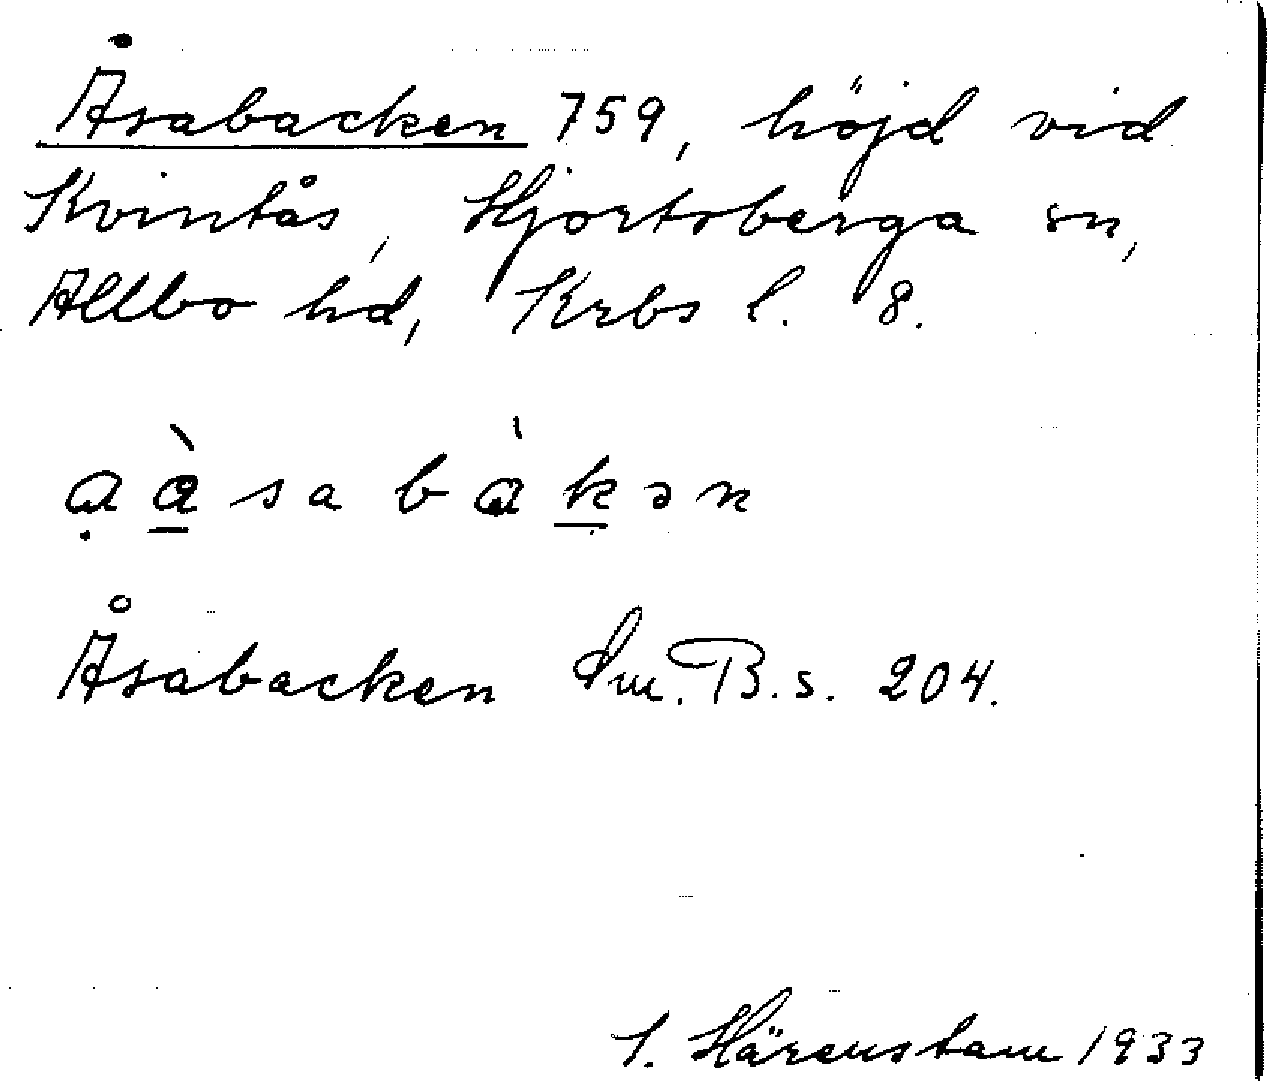 Åsabacken 759, höjd vid
Kvintås, Hjortsberga sn,
Allbo hd, Krbs l. 8.
ạà̱sabàḵən
Åsabacken Sm. B. s. 204.
S. Härenstam 1933